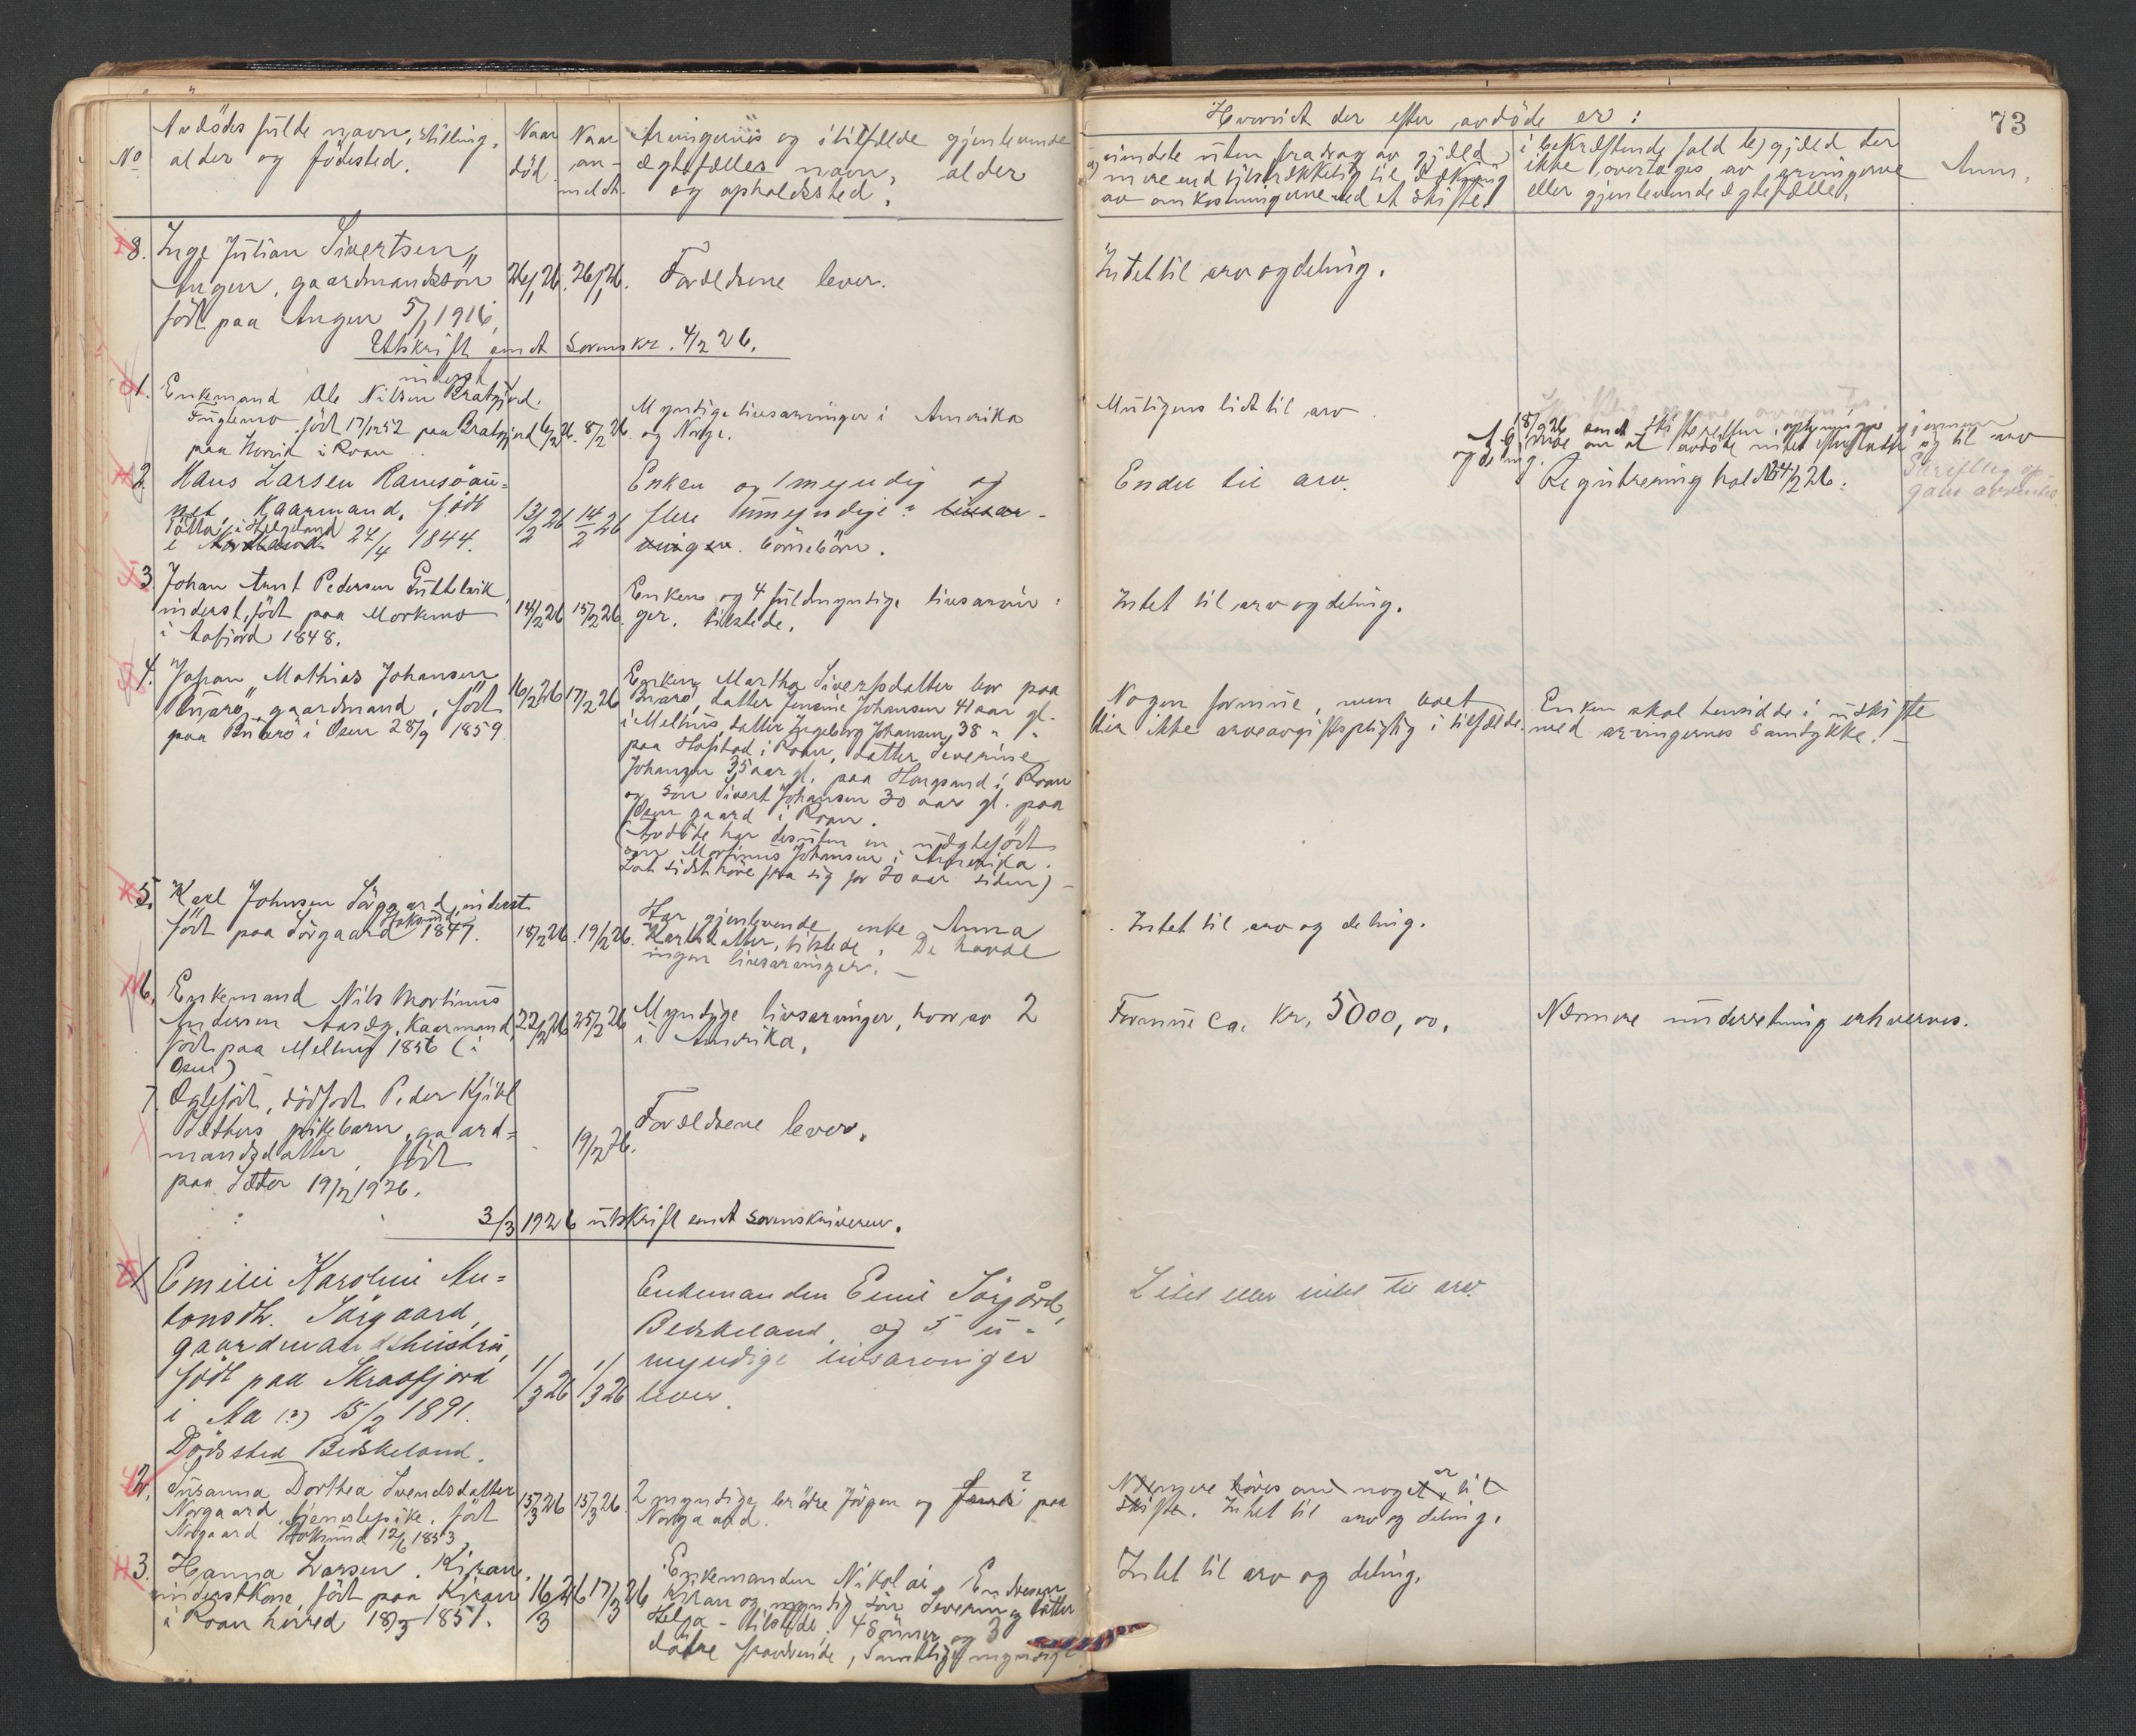 73
No
Avdödes fulde navn, stilling,
alder og födested.
Naar
död
Naar
an-
meldt.
Arvingernes og i tilfælde gjenlevende
ægtefælles navn, alder
og opholdssted.
Hvorvidt der efter avdöde er:
a) eiendele uten fradrag av gjæld
mere end tilstrækkelig til dækning
av omkostningerne ved et skifte.
i bekræftende fald b) gjæld der
ikke overtages av arvingerne
eller gjenlevende ægtefælle.
Anm.
8. Inge Julian Sivertsen
Angen, gaardmandssön
födt paa Angen 5/1 1916.
26/1 26. 26/1 26.
Forældrene lever.
Intet til arv og deling.
Utskrift sendt Sorenskr. 4/2 26.
1. Enkemand inderst Ole Nilsen Bratjord.
Fuglemo födt 17/12 52 paa Bratgjerd
paa Hovik i Roan
6/2 26. 8/2 26.
Myndige livsarvinger i Amerika
og Norge.
Muligens litt til arv.
18/9 26 sendt skifteretten oplysninger
om at avdöde intet efterlatte sig til arv
og deling.
2. Hans Larsen Ramsöau=
net, Kaarmand, födt
i Helgeland
i Nordland 24/4 1844.
13/2 26 14/2 26
Enken og 1 myndig og
flere umyndige livsar-
vinger. börnebörn.
Endel til arv.
Registrering holdt 24/2 26.
Skriftlig op-
gave
3. Johan Arnt Pedersen
inderst, födt paa Morkemo
i Aafjord 1848.
14/2 26 15/2 26.
Enken og 4 fuldmyndige livsarvin-
ger. tilstede.
Intet til arv og deling.
4. Johan Mathias Johansen
gaardmand, födt
paa i Osen 28/9 1859
16/2 26 17/2 26
Enken Martha Sivertsdatter bor paa
datter Jensine Johansen 41 aar gl.
i Melhus, datter Ingeborg Johansen, 38 " "
paa Hofstad i Roan, datter Severine
Johansen 35 aar gl. paa Hongsand i Roan
og sön Sivert Johansen 30 aar gl. paa
Osen gaard i Roan.
(Avdöde har desuten en uægtefödt
sön Martinus Johansen i Amerika.
Lot sidst höre fra sig for 20 aar siden)
Nogen formue, men boet
blir ikke arveavgiftspligtig i tilfælde.
Enken skal hensidde i uskifte
med arvingernes samtykke.
5. Karl Johnsen Sörgaard, inderst
födt paa Sörgaard Stoksund 1847.
18/2 26. 19/2 26.
Har gjenlevende enke Anna
Karlsdatter, tilstede. De havde
ingen livsarvinger.
Intet til arv og deling.
6. Enkemand Nils Martinus
Andersen Aasög, Kaarmand,
födt paa Melhus 1856 (i
Osen)
22/2 26 25/2 26
Myndige livsarvinger, hvorav 2
i Amerika.
Formue ca. kr. 5000,00.
Nærmere underretning erhverves.
7. Ægtefödt, dödfödt Peder Kjöbl
Sæthers pikebarn, gaard=
mandsdatter, födt
paa Sæter 19/2 1926.
19/2 26.
Forældrene lever.
3/3 1926 utskrift sendt Sorenskriveren.
1 Emilie Karoline An=
tonsdtr. Sörgaard,
gaardmandshustru,
födt paa Skraafjord
i Aa (?) 15/2 1891.
Dödssted Beskeland.
1/3 26 1/3 26
Enkemanden Emil Sörgård,
Beskeland, og 5 u-
myndige livsarvinger
lever.
Litet eller intet til arv.
2. Susanna Dorthea Svendsdatter
Norgaard, tjenestepike, födt
Norgaard Stoksund 12/6 1853
15/3 26 15/3 26.
2 myndige brödre Jörgen og ? paa
Norgaard.
Nærmere höres om noget er til
skifte. Intet til arv og deling.
3. Hanna Larsen. Kiran.
inderstkone, födt paa Kiran
i Roan herred 18/3 1851.
16/3 26 17/3 26
Enkemanden Nikolai Endresen
Kiran og myndig sön Severin og datter
Helga - tilstede. 4 sönner og 3
dötre fraværende, samtlige myndige
Intet til arv og deling.